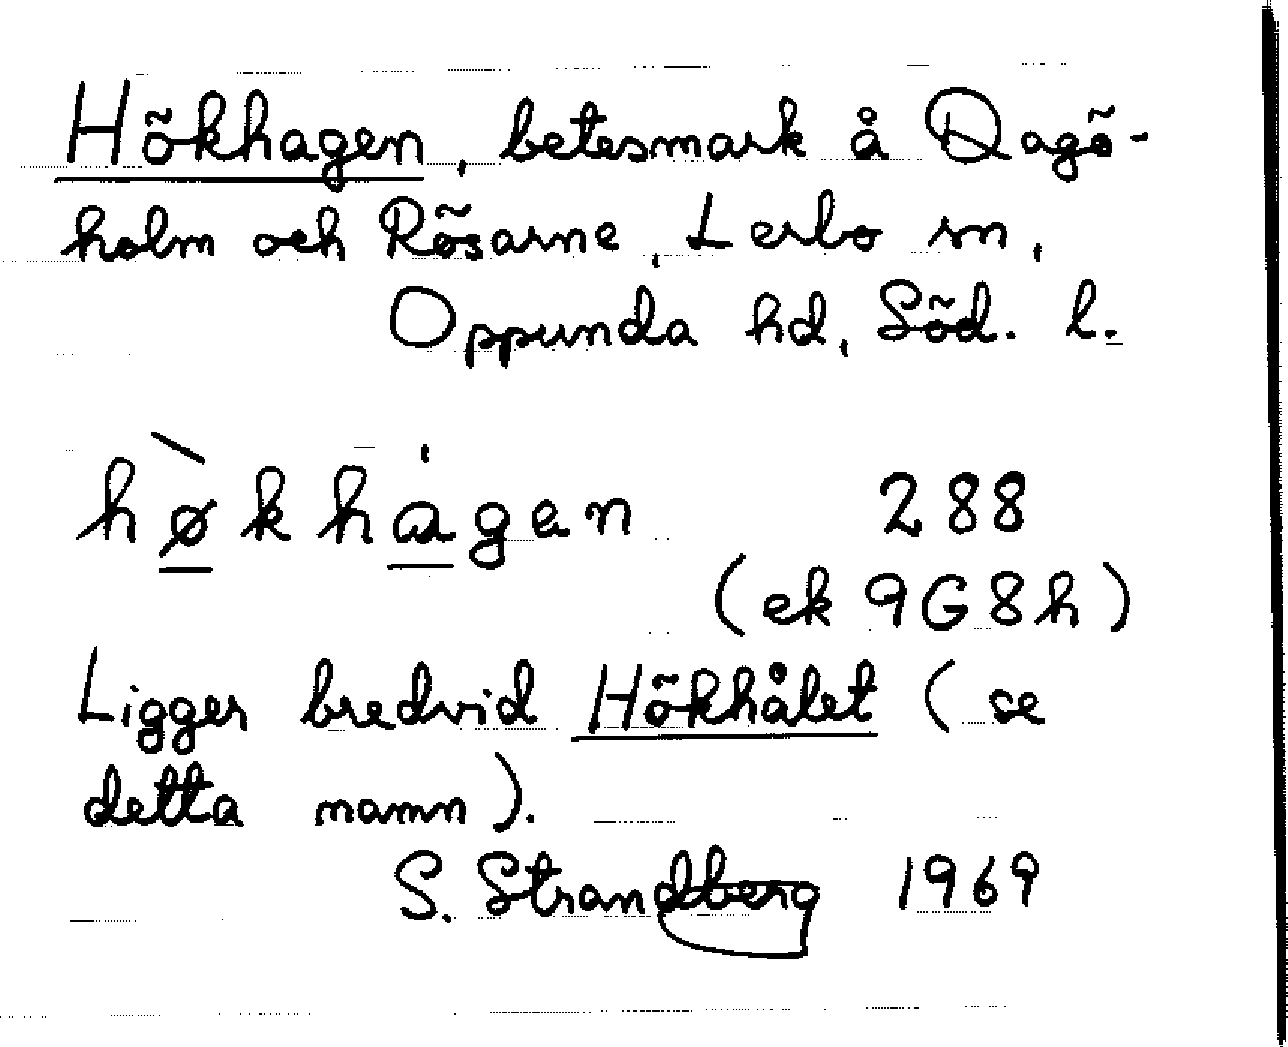 Hökhagen, betesmark å Dagö-
holm och Rösarne, Lerbo sn,
Oppunda hd, Söd. l.
hø̀khȧgen 288
(ek 9G8h)
Ligger bredvid Hökhålet (se
detta namn).
S. Strandberg 1969